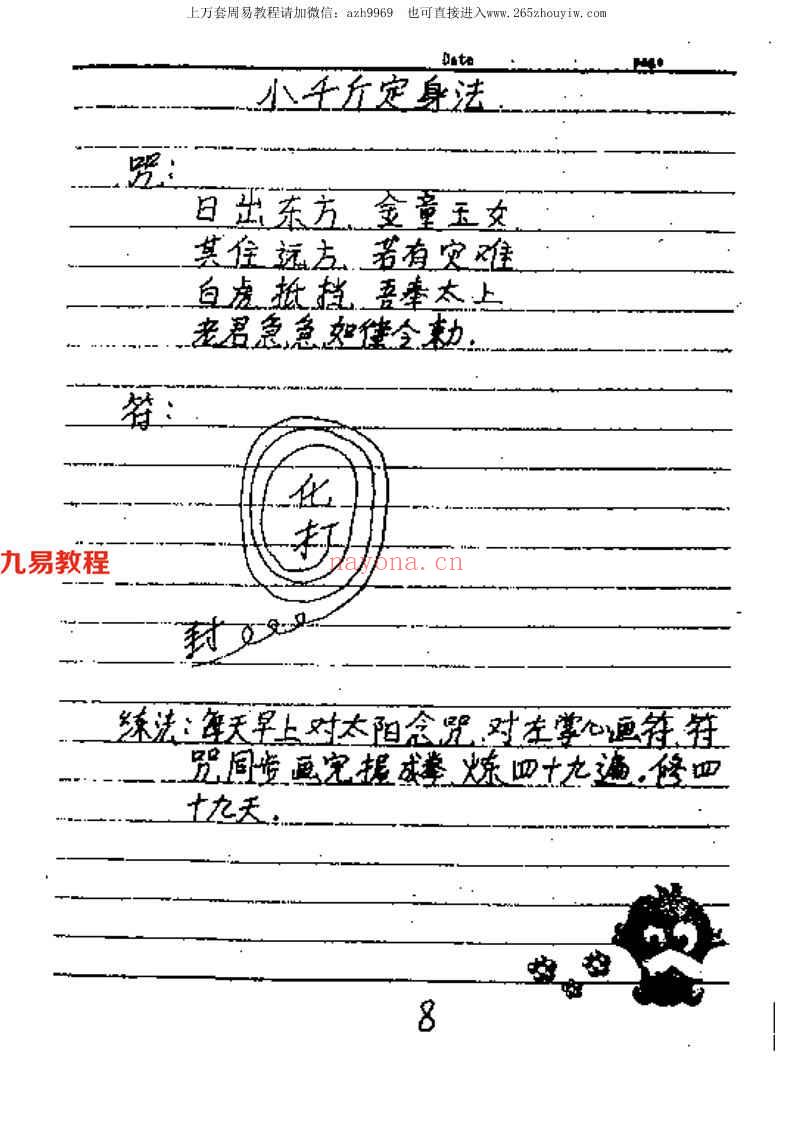 上万套周易教程请加微信：azh9969 也可直接进入www.265zhouyiw.com
Date page
小千斤定身法
咒：
日出东方、金童玉女
其住远方、若有灾难
白虎抵挡、吾奉太上
老君急急如律令勅.
符：
化
打
九易教程
nayona.cn
封
练法：每天早上对太阳念咒、对左掌心画符、符
咒同步画完握成拳、炼四十九遍。修四
十九天。
8